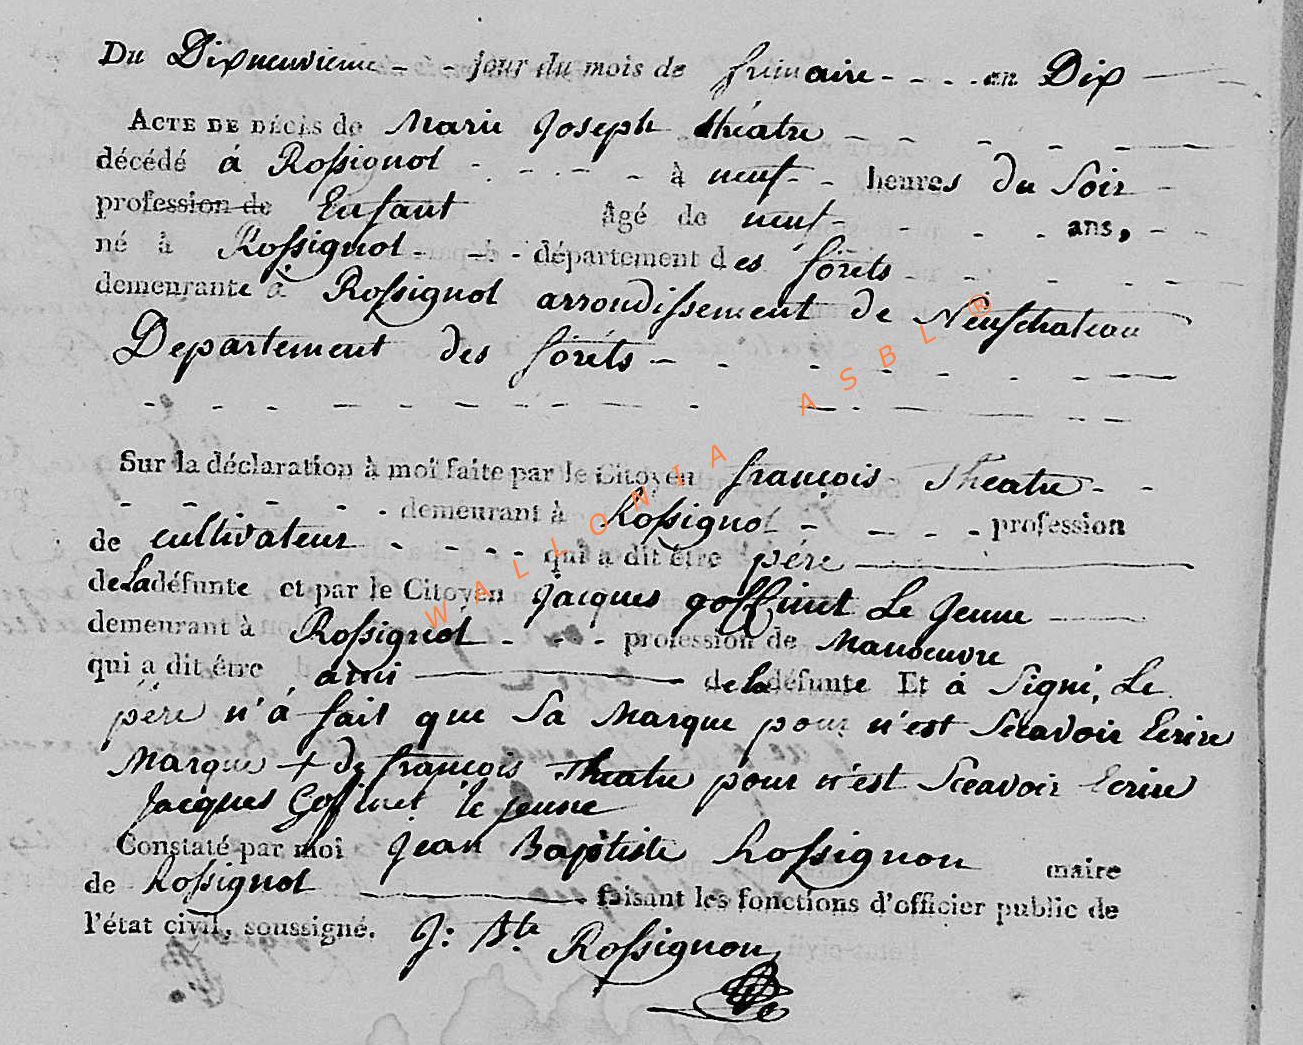 Du Dixneuvieme - - jour du mois de frimaire - - - - an Dix
ACTE DE DÉCÈS de Marie Joseph théatre
décédé à Rossignol - - - - - à neuf - - heures du Soir -
profession de Enfant âgé de neuf - - - - ans, - -
né à Rossignol - - - - département des forêts
demeurante à Rossignol arrondissement de Neufchateau
Departement des forêts - - - - - -
Sur la déclaration à moi faite par le Citoyen françois Theatre - -
- - - - - - demeurant à Rossignol - - - - profession
de cultivateur - - - - qui a dit être pére
de La défunte et par le Citoyen jacques goffinet Le Jeune
demeurant à Rossignol - - - profession de Manoeuvre
qui a dit être ami de la défunte Et à Signé, Le
pére n'à fait que Sa Marque pour n'est Sçavoir Ecrire
Marque + de françois Theatre pour n'est Sçeavoir Ecrire
Jacques Goffinet le jeune
Constaté par moi Jean Baptiste Rossignon maire
de Rossignol faisant les fonctions d'officier public de
l'état civil, soussigné. J: Bte Rossignon
WALLONIA ASBL ®